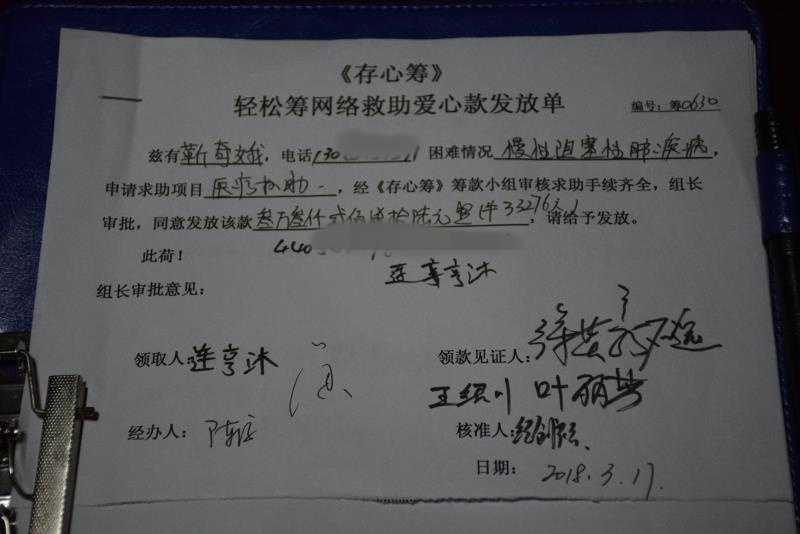 《存心筹》
轻松筹网络救助爱心款发放单
编号：筹0630
兹有靳奇娥，电话130 困难情况慢性阻塞性肺疾病，
申请求助项目医疗救助，经《存心筹》筹款小组审核求助手续齐全，组长
审批，同意发放该款叁万叁仟贰佰柒拾陆元整（¥33276元），请给予发放。
此荷！
连亨沐
组长审批意见：
领取人：连亨沐
领款见证人：
叶丽
经办人：陈
核准人：
日期：2018.3.17.